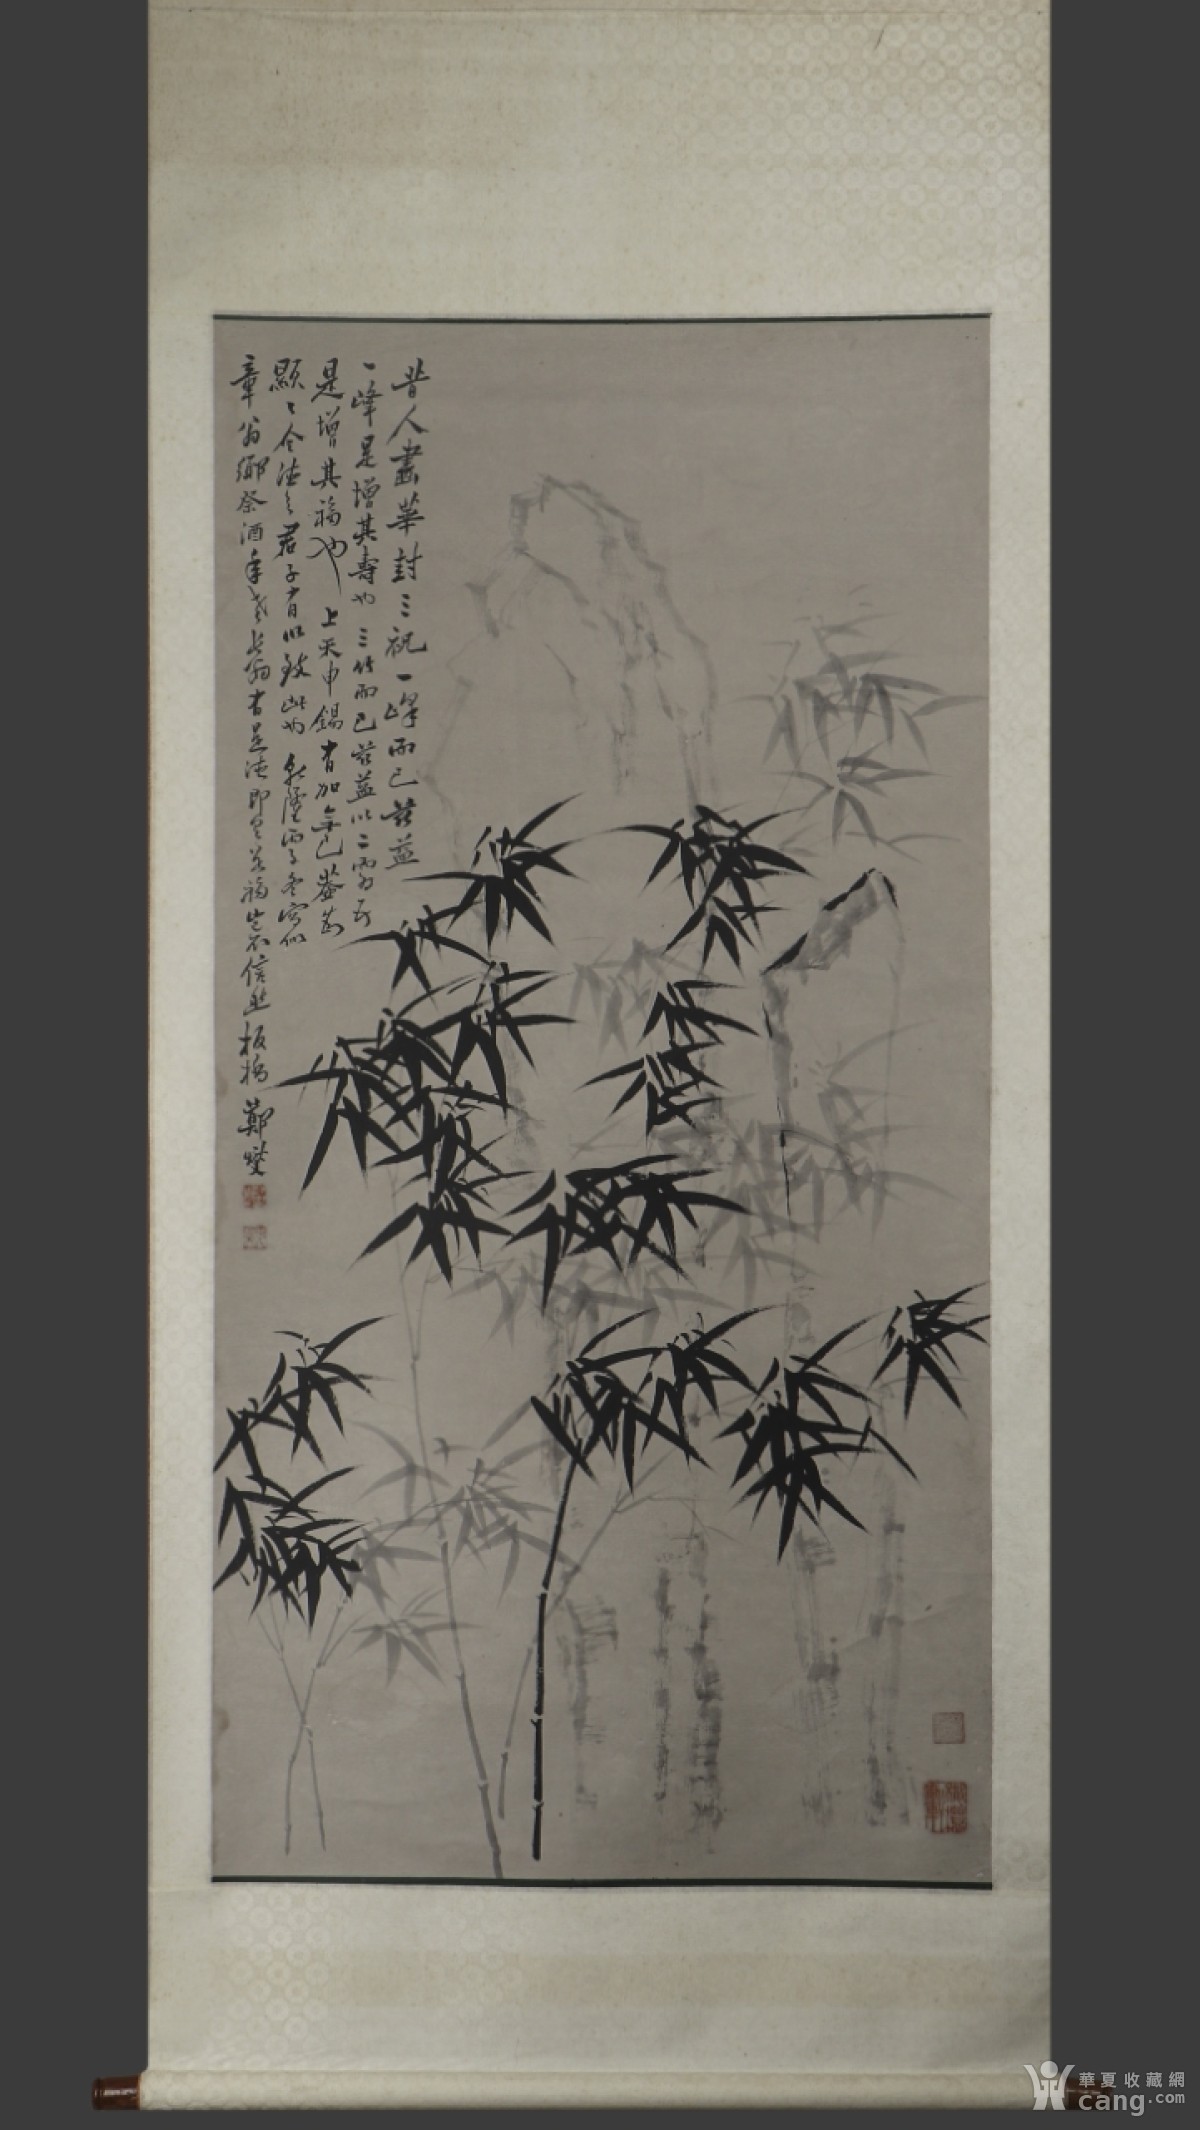 昔人畫華封三祝一峰而已茲益
一峰是增其壽也三竹而已茲益以二
是增其福也上天申錫有加無已
顯〻令德之君子有以致此也乾隆丙子冬寫似
章翁鄉祭酒年老長翁有是德即是福豈不信然板橋鄭燮
華夏收藏網
cang.com